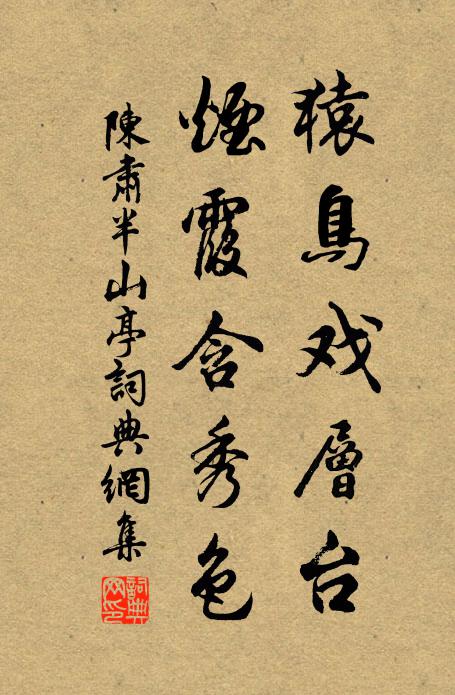 猿鳥戏層台
煙霞含秀色
陳肅半山亭詞典網集
詞典
网印